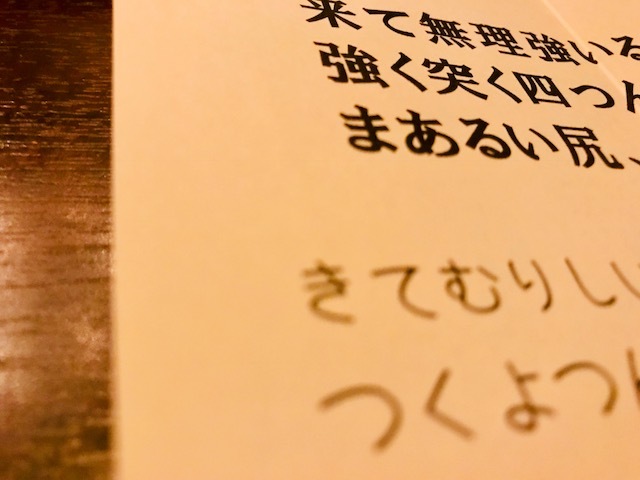 来て無理強いる
強く突く四つん
まあるい尻、
きてむりしい
つくよつん